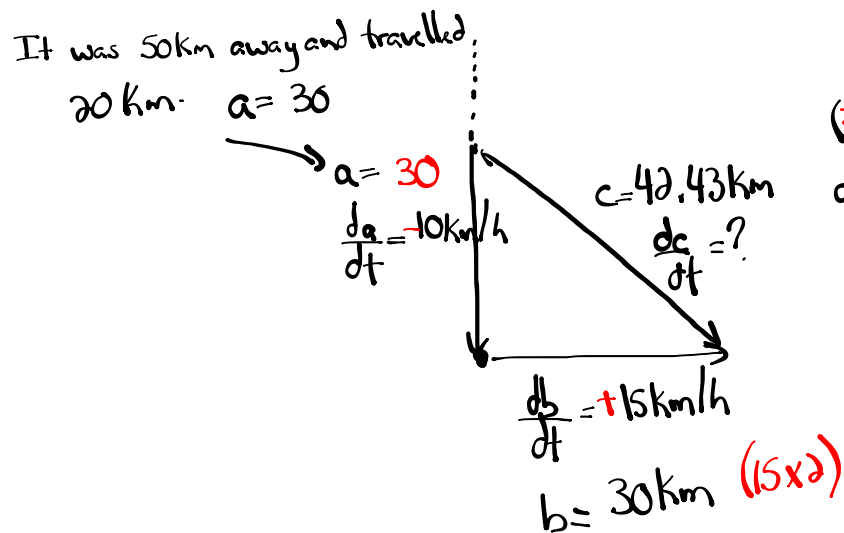 It was 50km away and travelled
20 Km. a= 30
a= 30
da/dt = -10km/h
c=42.43km
dc/dt = ?
db/dt = +15km/h
b= 30km (15x2)